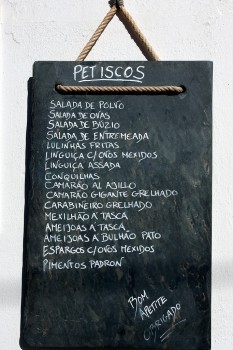 PETISCOS
SALADA DE POLVO
SALADA DE OVAS
SALADA DE BÚZIO
SALADA DE ENTREMEADA
LULINHAS FRITAS
LINGUIÇA C/OVOS MEXIDOS
LINGUIÇA ASSADA
CONQUILHAS
CAMARÃO AL AJILLO
CAMARÃO GIGANTE GRELHADO
CARABINEIRO GRELHADO
MEXILHÃO À TASCA
AMEIJOAS À TASCA
AMEIJOAS À BULHÃO PATO
ESPARGOS C/OVOS MEXIDOS
PIMENTOS PADRON
BOM
APETITE
OBRIGADO